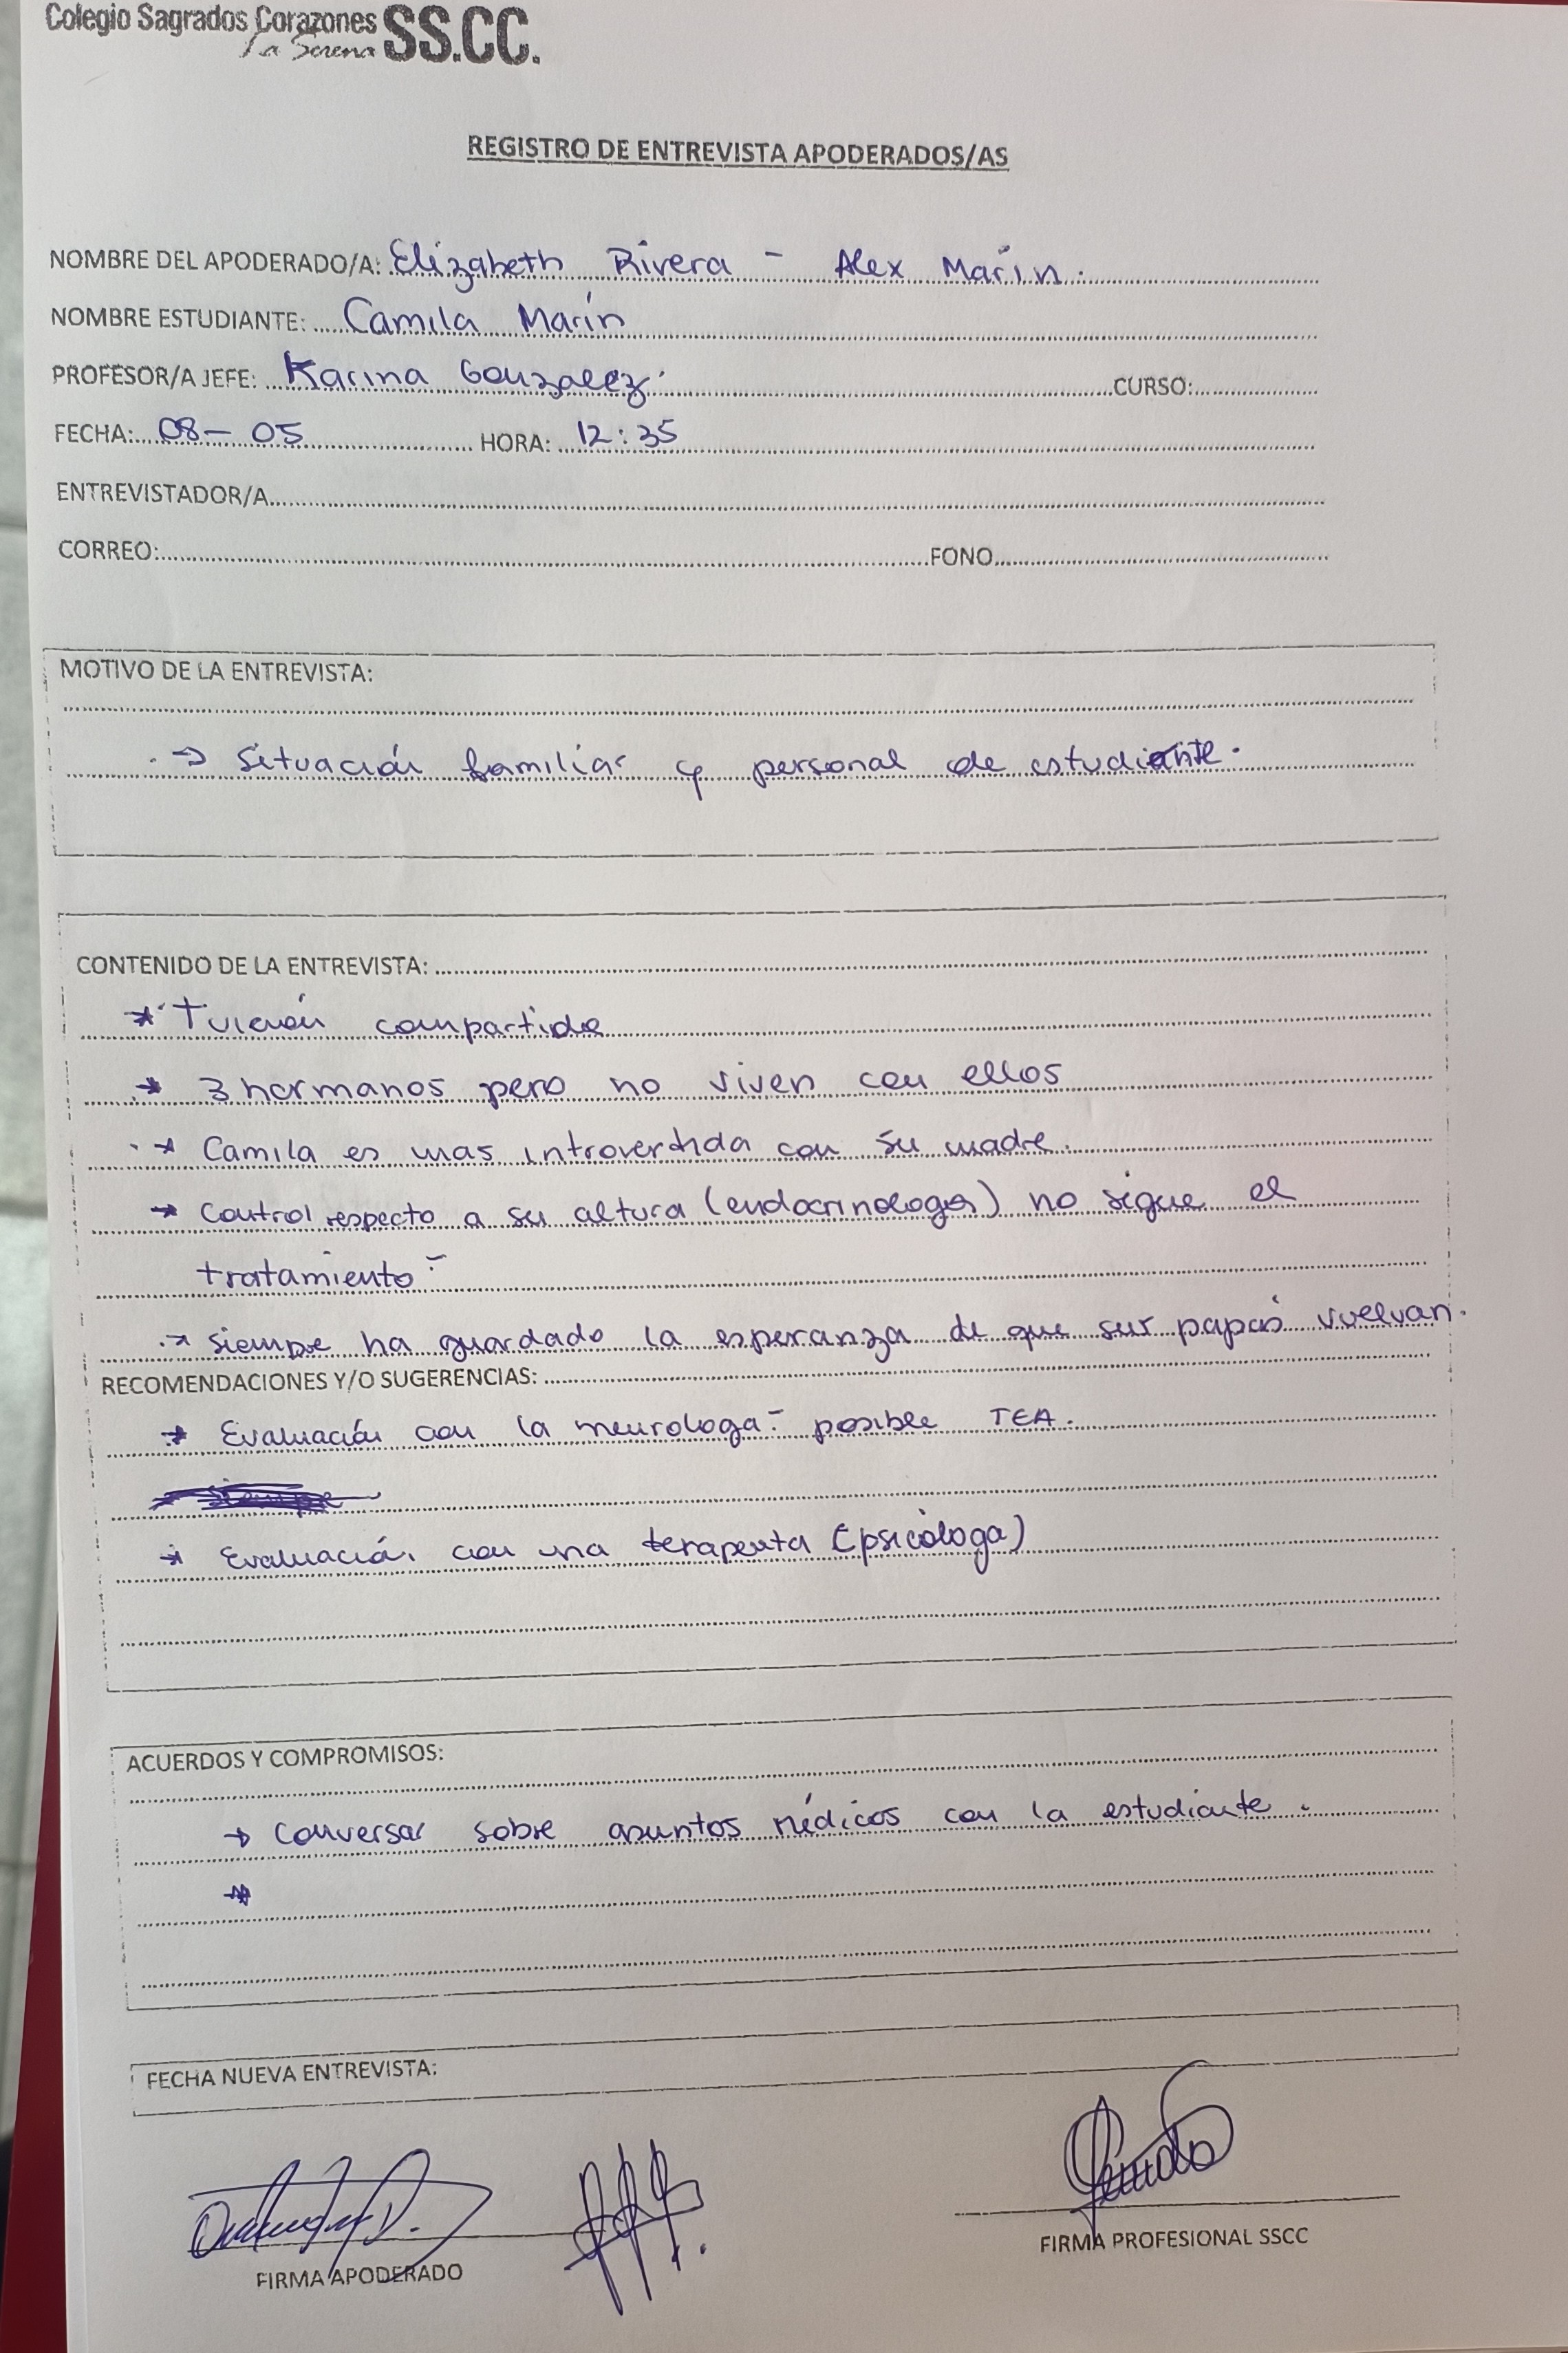 Colegio Sagrados Corazones SS.CC.
La Serena
REGISTRO DE ENTREVISTA APODERADOS/AS
NOMBRE DEL APODERADO/A: Elizabeth Rivera - Alex Marín.
NOMBRE ESTUDIANTE: Camila Marín
PROFESOR/A JEFE: Karina Gonzalez. CURSO:
FECHA: 08-05 HORA: 12:35
ENTREVISTADOR/A
CORREO: FONO
MOTIVO DE LA ENTREVISTA:
→ Situación familiar y personal de estudiante.
CONTENIDO DE LA ENTREVISTA:
* Tuición compartida
→ 3 hermanos pero no viven con ellos
→ Camila es mas introvertida con su madre.
→ Control respecto a su altura (endocrinologa) no sigue el
tratamiento-
→ siempre ha guardado la esperanza de que sus papás vuelvan.
RECOMENDACIONES Y/O SUGERENCIAS:
→ Evaluación con la neurologa- posible TEA.
→ Evaluación con una terapeuta (psicóloga)
ACUERDOS Y COMPROMISOS:
→ Conversar sobre asuntos médicos con la estudiante.
FECHA NUEVA ENTREVISTA:
FIRMA APODERADO
FIRMA PROFESIONAL SSCC